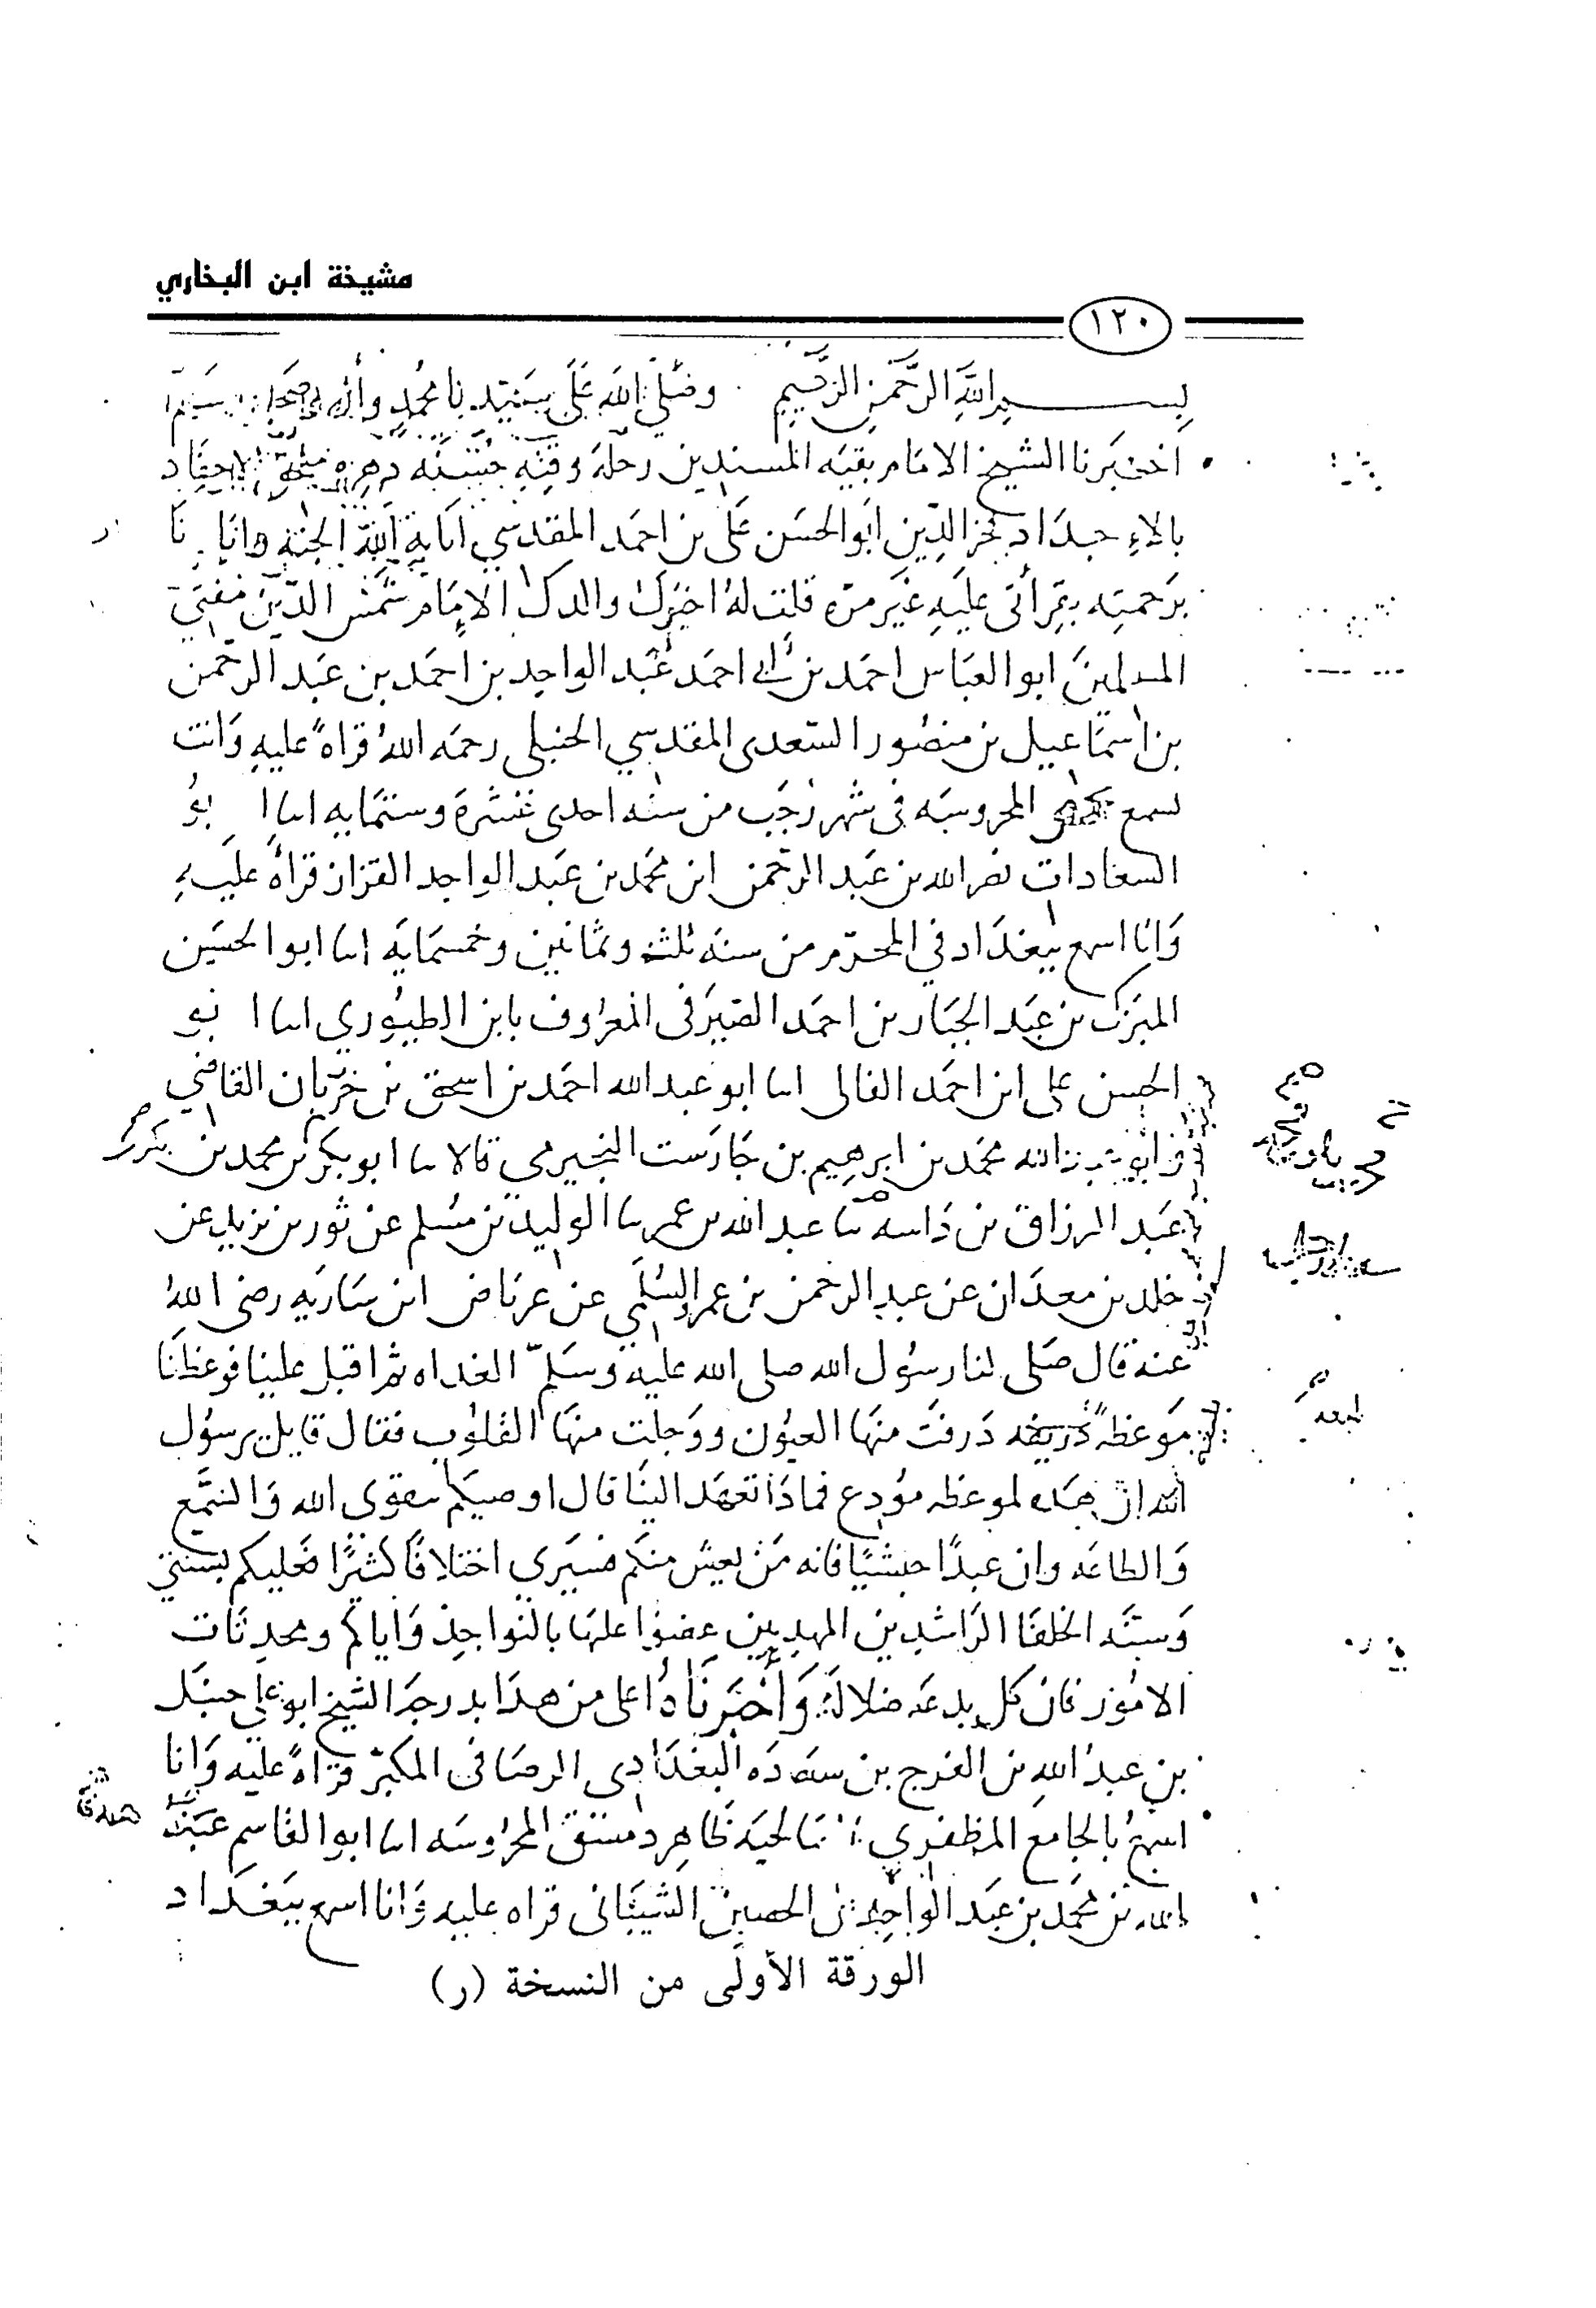 مشيخة ابن البخاري
١٢٠
بسم الله الرحمن الرحيم وصلى الله على سيدنا محمد وآله وصحبه وسلم
اخبرنا الشيخ الامام بقيه المسندين رحلة وقته
بالاجداد فخر الدين ابو الحسن على بن احمد المقدسي اثابه الله الجنة وايانا
برحمته بقراتى عليه غير مره قلت له اخبرك والدك الامام شمس الدين مفتي
المسلمين ابو العباس احمد بن أبي احمد عبد الواحد بن احمد بن عبد الرحمن
بن اسماعيل بن منصور السعدى المقدسي الحنبلى رحمه الله قراهً عليه وانت
تسمع المحروسه فى شهر رجب من سنه احدى عشرة وستمايه انا ابو
السعادات نصر الله بن عبد الرحمن ابن محمد بن عبد الواحد القزاز قراهً عليه
وانا اسمع ببغداد في المحرم من سنه ثلث وثمانين وخمسمايه انا ابو الحسين
المبرك بن عبد الجبار بن احمد الصيرفى المعروف بابن الطيوري انا ابو
الحسن على ابن احمد الفالى انا ابو عبد الله احمد بن اسحق بن خربان القاضي
وابو عبد الله محمد بن ابرهيم بن جارست النجيرمي قالا نا ابو بكر محمد بن بكر
بن عبد الرزاق بن داسه نا عبد الله بن عمر نا الوليد بن مسلم عن ثور بن يزيد عن
خلد بن معدان عن عبد الرحمن بن عمرو السلمي عن عرباض ابن ساريه رضى اللهُ
عنه قال صلى لنا رسول الله صلى الله عليه وسلم الغداه ثم اقبل علينا فوعظنا
موعظةً ذرفت منها العيون ووجلت منها القلوب فقال قايل يرسول
الله ان هذه لموعظه مودع فماذا تعهد الينا قال اوصيكم بتقوى الله والسمع
والطاعه وان عبدًا حبشيًا فانه من يعش منكم فسيرى اختلافًا كثيرًا فعليكم بسنتي
وسنه الخلفا الراشدين المهديين عضوا عليها بالنواجذ واياكم ومحدثات
الامور فان كل بدعه ضلالة واخبرناهُ اعلى من هذا بدرجه الشيخ ابو علي حنبل
بن عبد الله بن الفرج بن سعاده البغدادى الرصافى المكبر قراهً عليه وانا
اسمع بالجامع المظفري بالصالحيه ظاهر دمشق المحروسه انا ابو القاسم هبة
الله بن محمد بن عبد الواحد بن الحصين الشيبانى قراه عليه وانا اسمع ببغداد
الورقة الأولى من النسخة (ر)